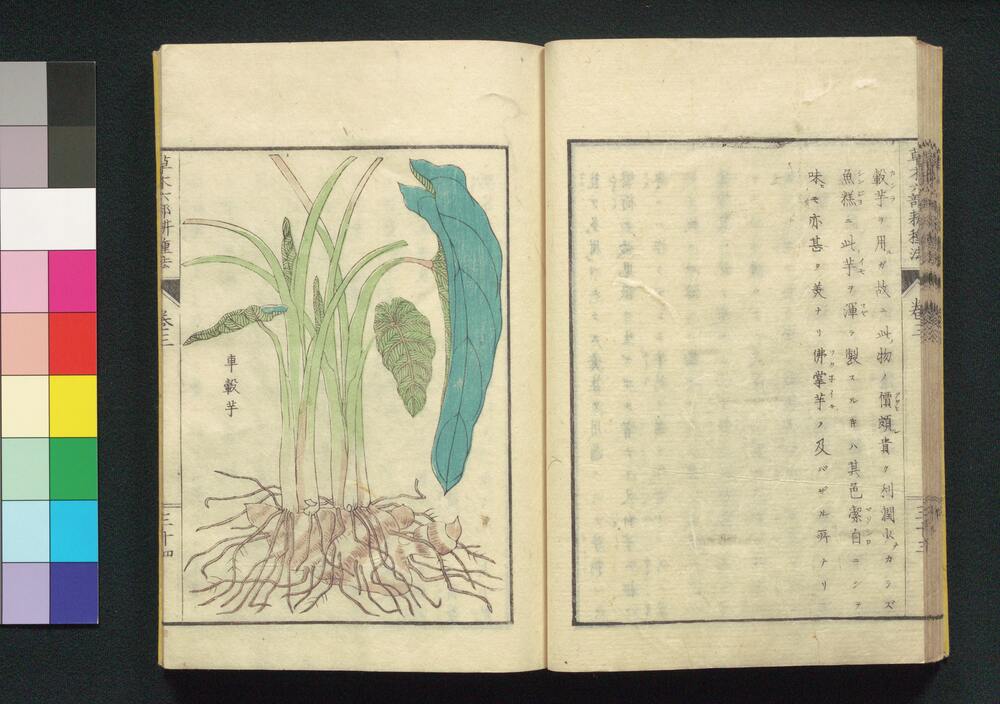 轂芋ヲ用ルガ故ニ此物ノ價頗貴ク利潤少カラズ
魚糕ニ此芋ヲ渾テ製スルキハ其色潔白ニシテ
味モ亦甚タ美ナリ佛掌芋ノ及バザル所ナリ
草木六部耕種法
卷三
三十三
車轂芋
草木六部耕種法
卷三
三十四